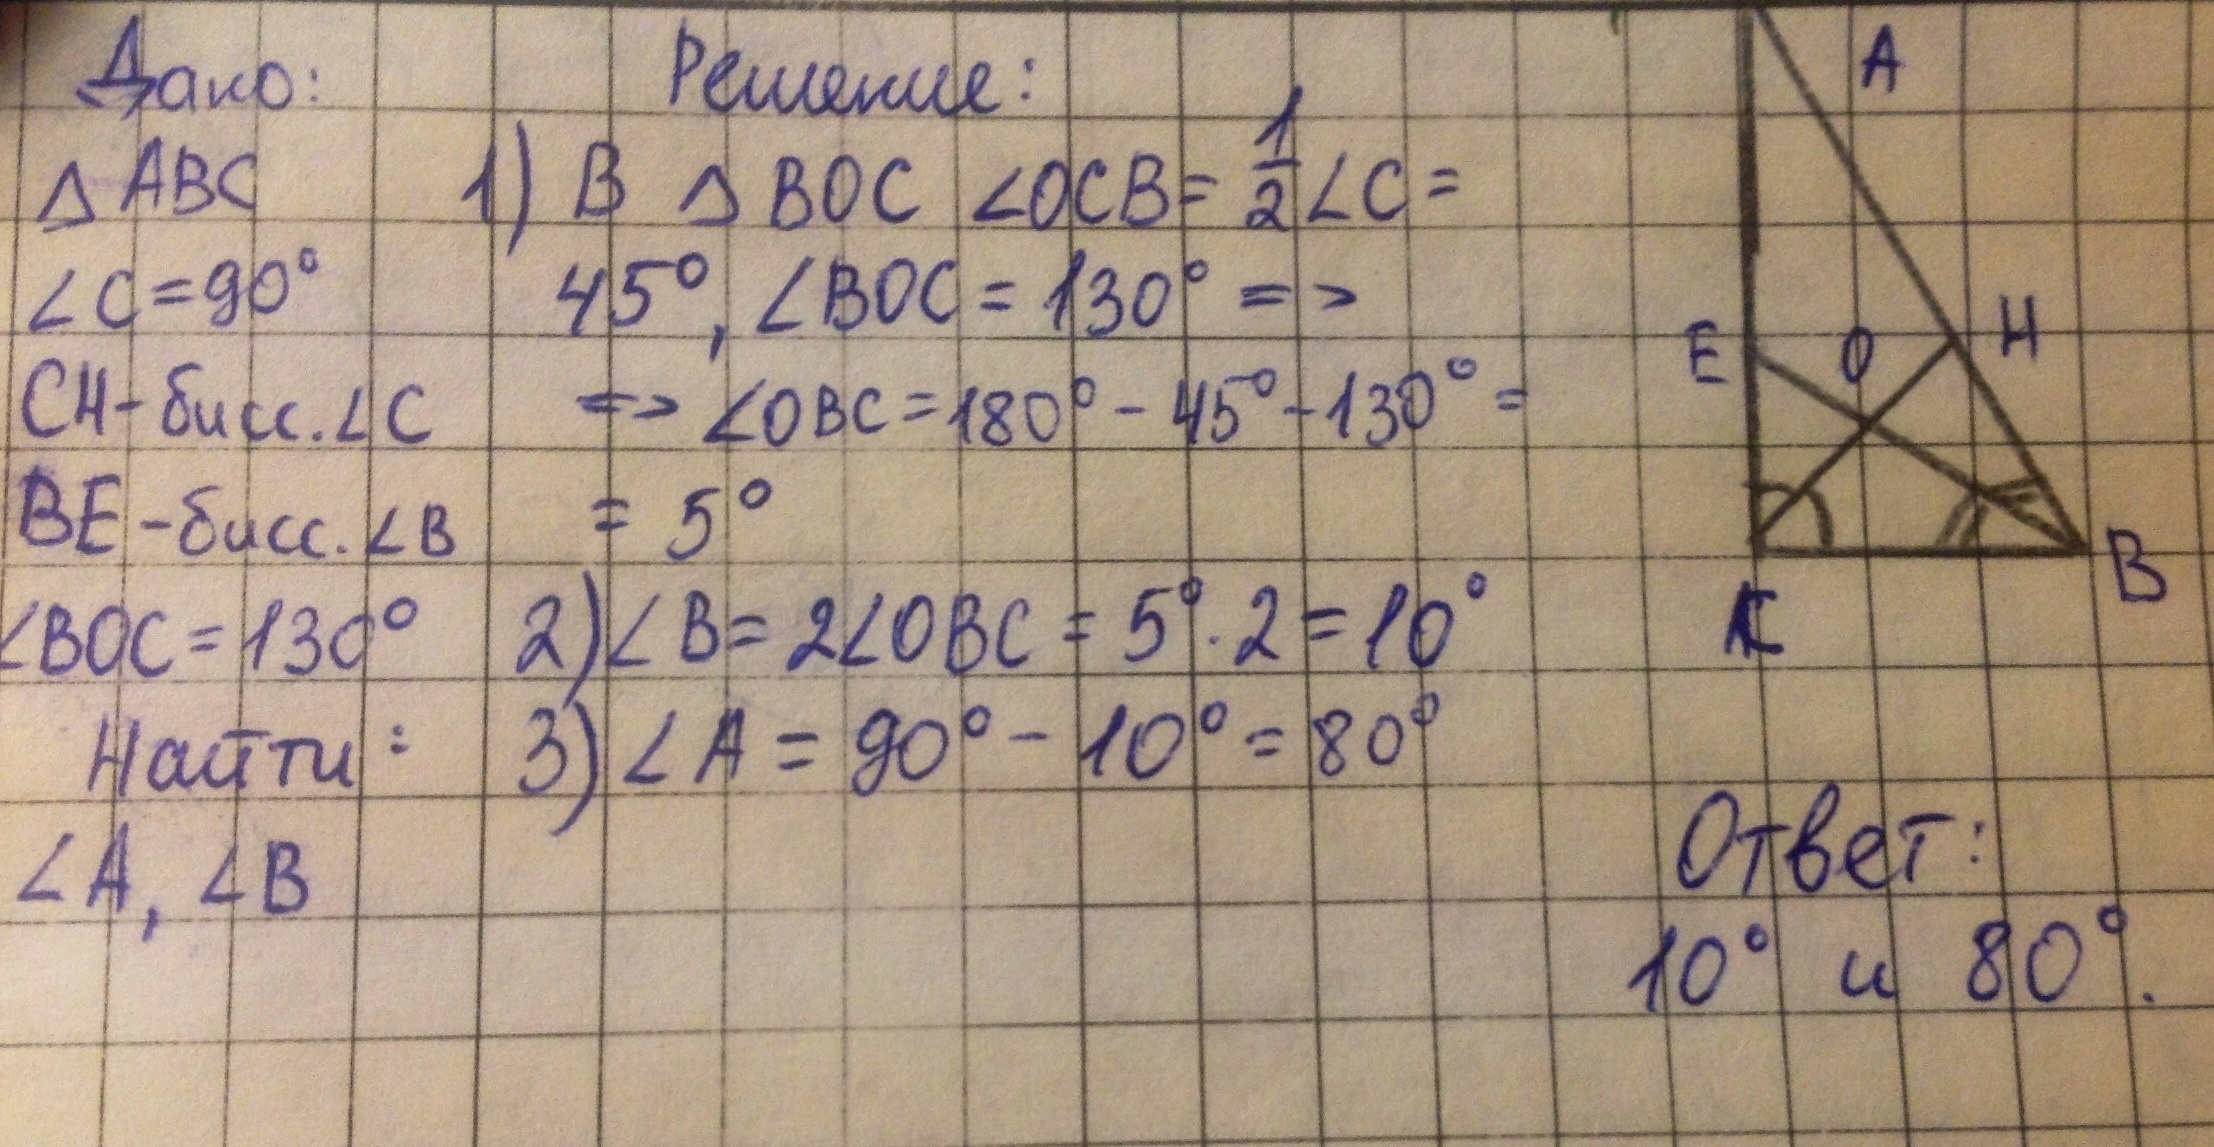 Дано:
△ ABC
∠C=90°
CH-бисс.∠C
BE-бисс.∠B
∠BOC=130°
Найти:
∠A, ∠B
Решение:
1) В △ BOC ∠OCB= 1/2 ∠C =
45°, ∠BOC = 130° =>
=> ∠OBC = 180° - 45° - 130° =
= 5°
2) ∠B = 2∠OBC = 5° · 2 = 10°
3) ∠A = 90° - 10° = 80°
A
E O H
C B
Ответ:
10° и 80°.